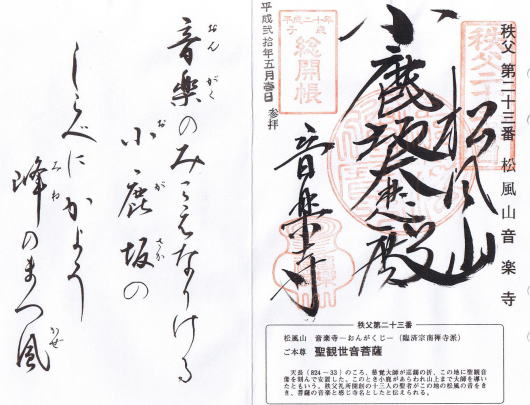 秩父 第二十三番 松風山 音楽寺
松風山
小鹿坂大悲殿
音楽寺
平成二十年
子歳
総開帳
平成弐拾年五月壱日 参拝
音楽のみこゑなりける
おんがく
小鹿坂の
おがさか
しらべにかよう
峰のまつ風
みね かぜ
秩父第二十三番
松風山 音楽寺―おんがくじ―(臨済宗南禅寺派)
ご本尊 聖観世音菩薩
天長(824~33)のころ、慈覚大師が巡錫の折、この地に聖観音
像を刻んで安置した。このとき小鹿があらわれ山上まで大師を導い
たともいう。秩父札所開創の十三人の聖者がこの地の松風の音をき
き、菩薩の音楽と感じ寺名としたと伝えられる。